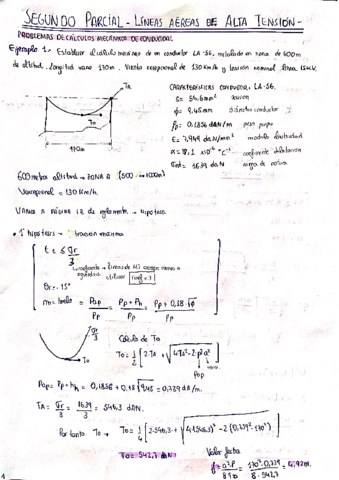 SEGUNDO PARCIAL - LÍNEAS AÉREAS DE ALTA TENSIÓN -
PROBLEMAS DE CÁLCULOS MECÁNICO DE CONDUCTOR.
Ejemplo 1.- Establecer el cálculo mecánico de un conductor LA-56, instalado en zona de 600m
de altitud. Longitud vano 170m. Viento excepcional de 130 Km/h y tensión nominal línea,
TA
To
170m
CARACTERÍSTICAS CONDUCTOR, LA-56.
S = 54.6 mm² sección
φ = 9.45 mm diámetro conductor
Pp = 0.1856 daN/m peso propio
E = 7.949 daN/mm² modulo elasticidad
α = 19.1 x10⁻⁶ °C⁻¹ coeficiente dilatación
1639 daN carga de rotura
600 metros altitud → ZONA B (500 → 1000m)
Vexcepcional = 130 Km/h
VAMOS A PÁGINA 12 de reglamento → hipótesis
1ª hipótesis → tracción máxima
t ≤ σr/3
utilizar coef = 3
θ = -15°
m = = Pap/Pp = Pp + Ph/Pp = Pp + 0.18·φ/Pp
σr/3
To
Cálculo de To
To = 1/2 [2·TA + √4TA² - 2p²a²]
Pap
vano
Pap = Pp + Ph = 0.1856 + 0.18√9.45 = 0.739 da/m.
TA = σr/3 = 1639/3 = 546.3 daN.
Por tanto To → To = 1/4 [2·546.3 + √4·(546.3)² - 2(0.739²·170²)]
To = 542.7 daN
Valor flecha
f = a²·P/8·To = 170²·0.739/8·542.7 = 4.92m.
1